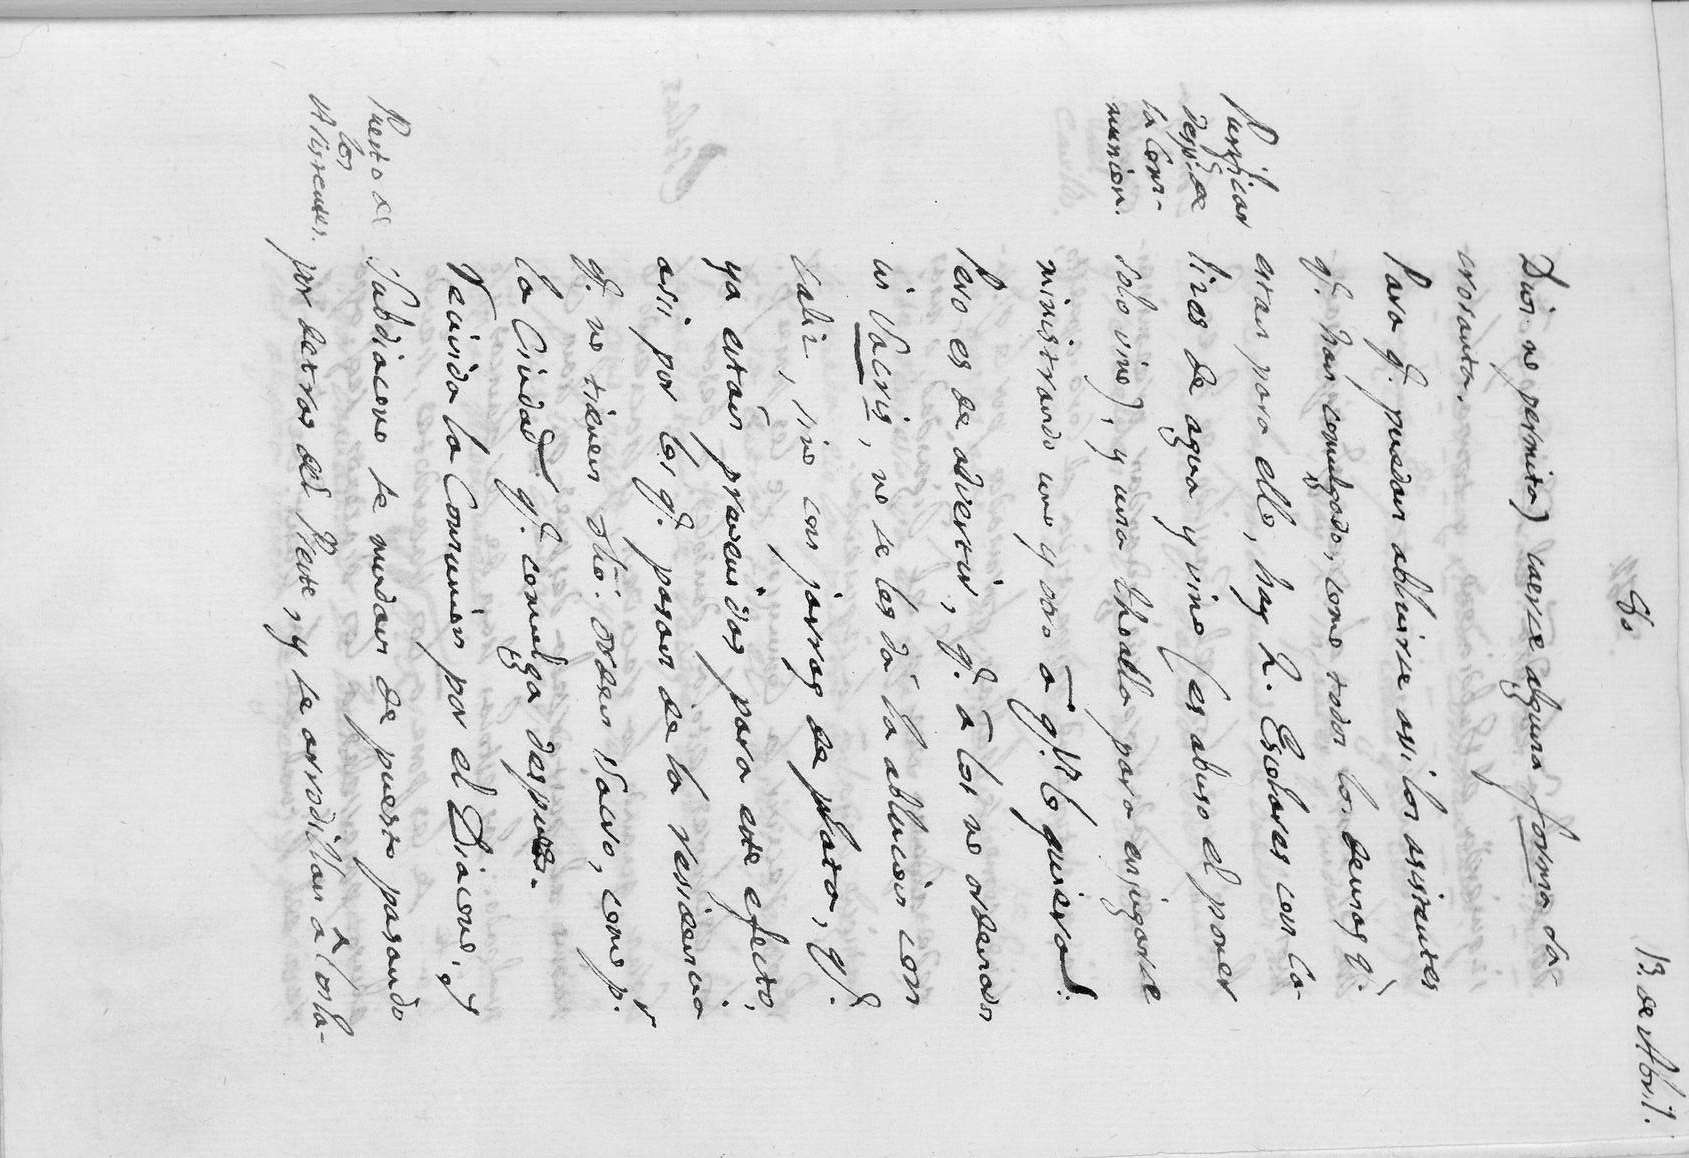 80
13. de Abril.
Dios no permita) caerse alguna forma sa-
crosanta.
Para q.e puedan abluirse assi los assistentes
q.e han comulgado, como todos los demas q.e
estan para ello, hay 2. Escolares con ca-
lizes de agua y vino (es abuso el poner
solo vino), y una thoalla para enjugarse
ministrando uno y otro â q.n lo quiera.
Pero es de advertir, q.e â los no ordenados
in Sacris, no se les da la ablucion con
Caliz, sino con jarras de plata, q.e
ya estàn prevenidas para este efecto,
assi por los q.e passan de la residencia
q.e no tienen dho. orden Sacro, como p.r
la Ciudad q.e comulga despues.
Recivida la Comunion por el Diacono, y
Subdiacono se mudan de puesto pasando
por detras del Preste, y se arrodillan â los la-
Purificar
desp.s de
la Com-
munion.
Puesto de
los
Asistentes.